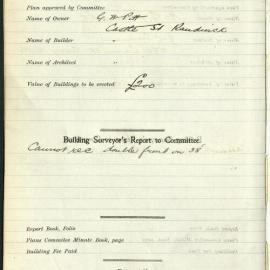 Plan approved by Committee
Name of Owner G. W. Pitt
Castle St Randwick
Name of Builder "
Name of Architect "
Value of Buildings to be erected £200
Building Surveyor's Report to Committee.
Cannot rec double front on 38'
Report Book, Folio
Plans Committee Minute Book, page
Building Fee Paid